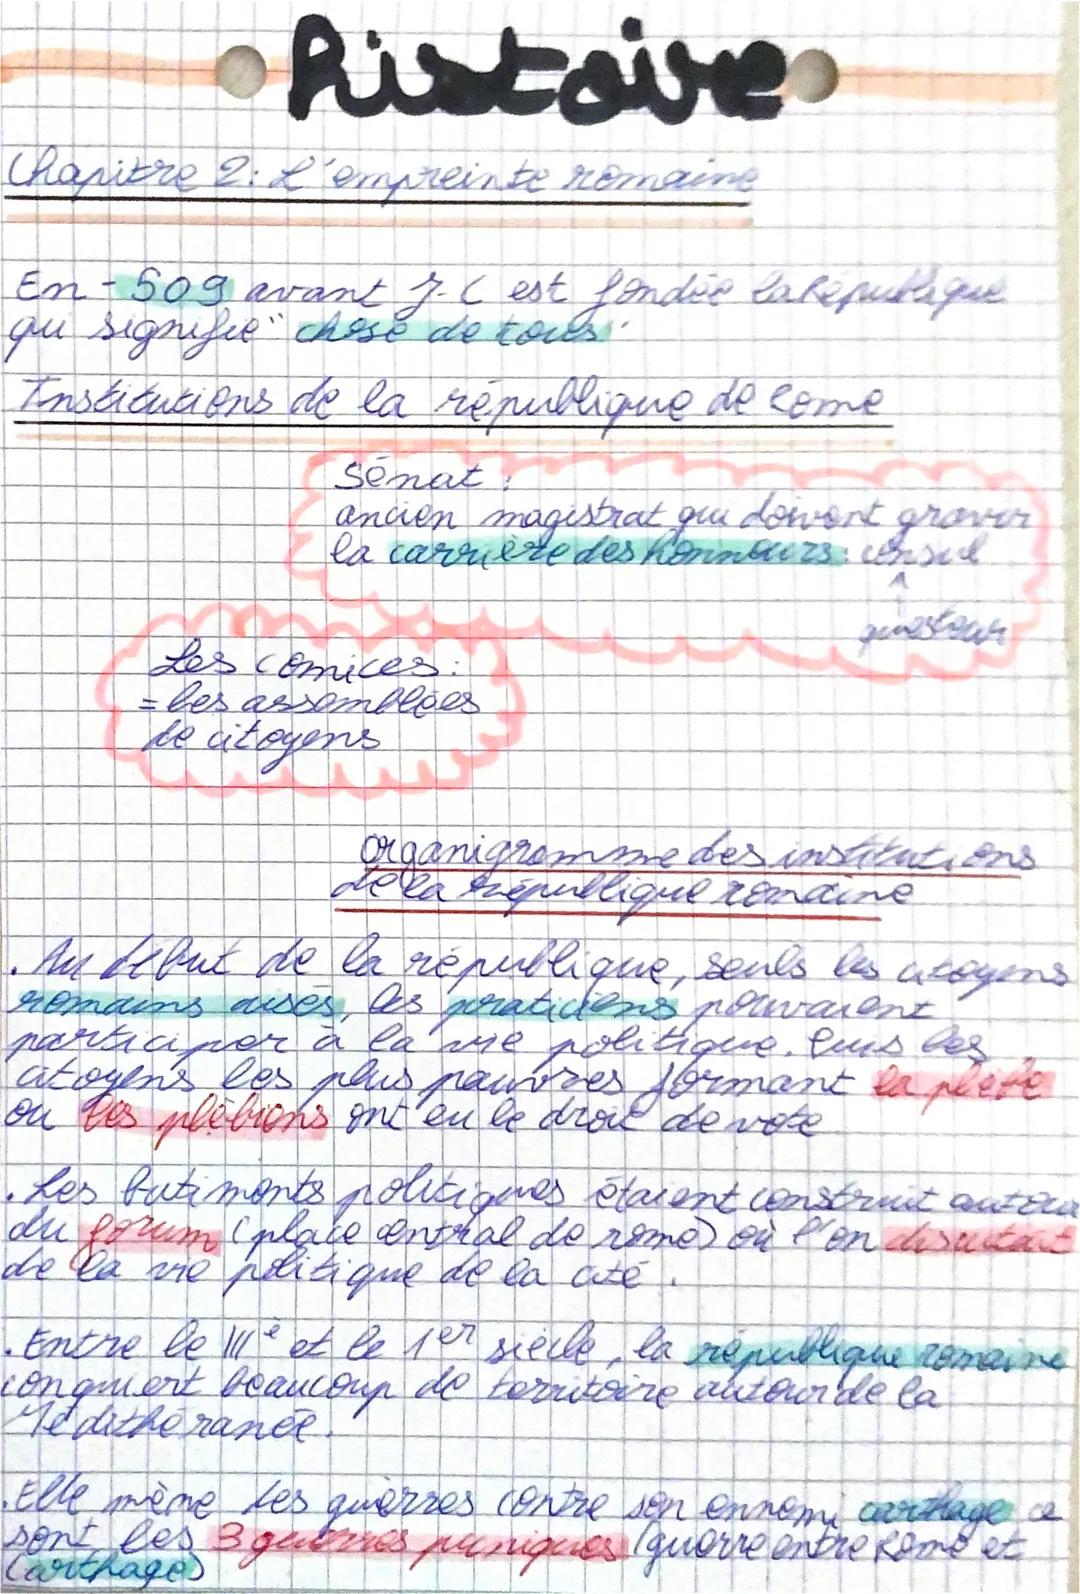 histoire
Chapitre 2: L'empreinte romaine
En -509 avant J.C est fondée la République
qui signifie "chose de tous"
Institutions de la république de Rome
Sénat :
ancien magistrat qui doivent gravir
la carrière des honneurs: consul
↑
questeur
Les comices:
= les assemblées
de citoyens
Organigramme des institutions
de la république romaine
. Au début de la république, seuls les citoyens
romains aisés, les praticiens pouvaient
participer à la vie politique. Puis les
citoyens les plus pauvres formant la plèbe
ou les plébiens ont eu le droit de vote
. Les batiments politiques étaient construit autour
du forum (place central de rome) où l'on discutait
de la vie politique de la cité.
. Entre le IIIe et le 1er siècle, la république romaine
conquiert beaucoup de territoire autour de la
Médithéranée.
. Elle mène des guerres contre son ennemi carthage ce
sont les 3 guerres puniques (guerre entre Rome et
Carthage)